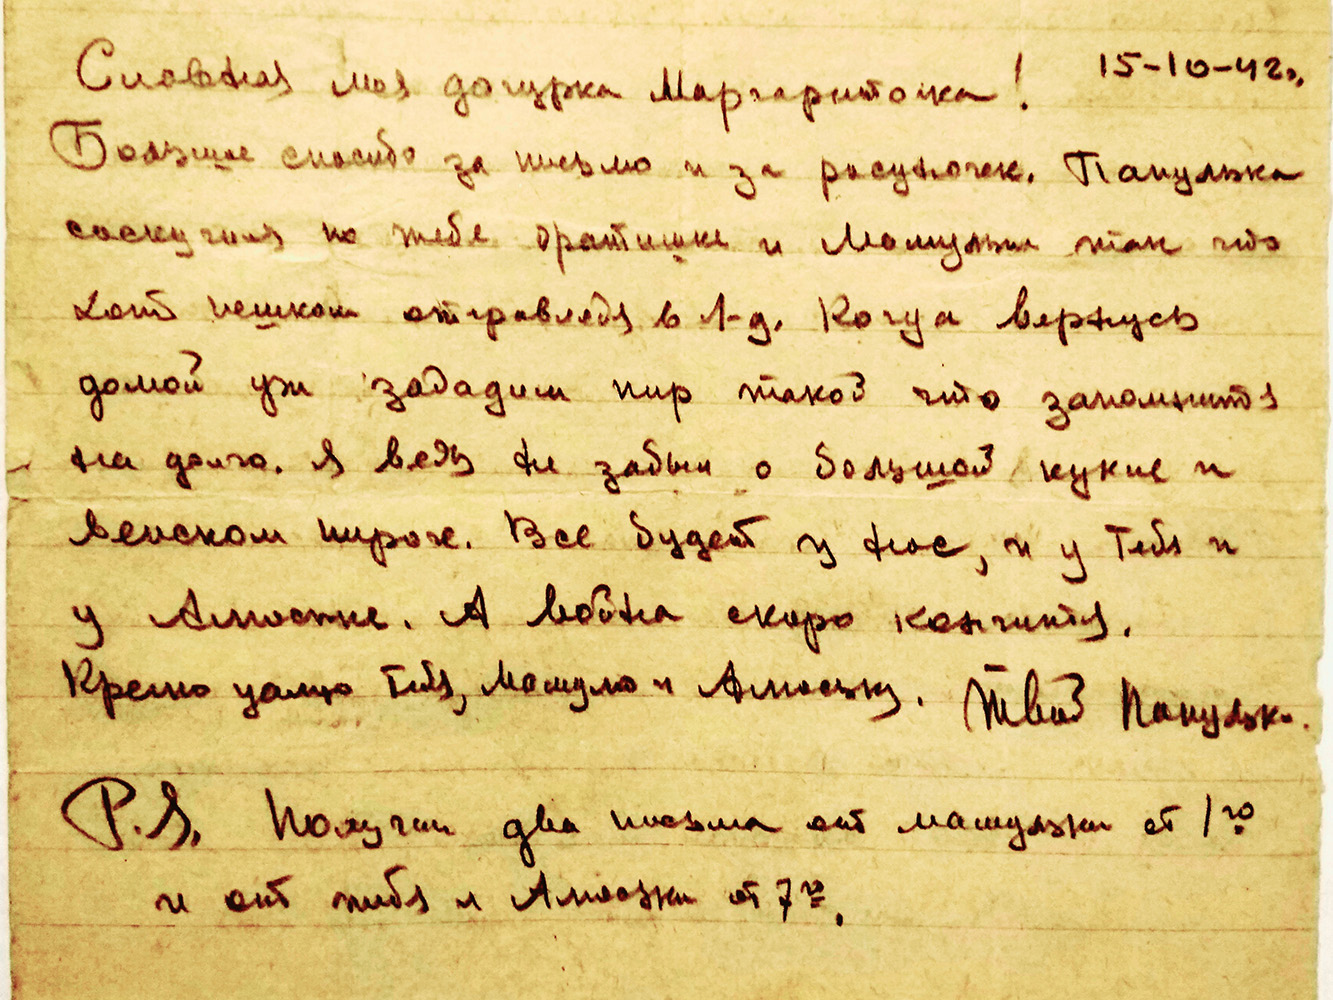 Славная моя дочурка Маргариточка! 15-10-42г.
Большое спасибо за письмо и за рисуночек. Папулька
соскучился по тебе братишке и Мамульке так что
хоть пешком отправляйся в Л-д. Когда вернусь
домой уж зададим пир такой что запомнится
на долго. Я ведь не забыл о большой кукле и
венском пироге. Все будет у нас, и у тебя и
у Алюськи. А война скоро кончится.
Крепко целую тебя, Мамулю и Алюську. Твой Папулька.
P.S. Получил два письма от мамульки от 1го
и от тебя и Алюськи от 7го.